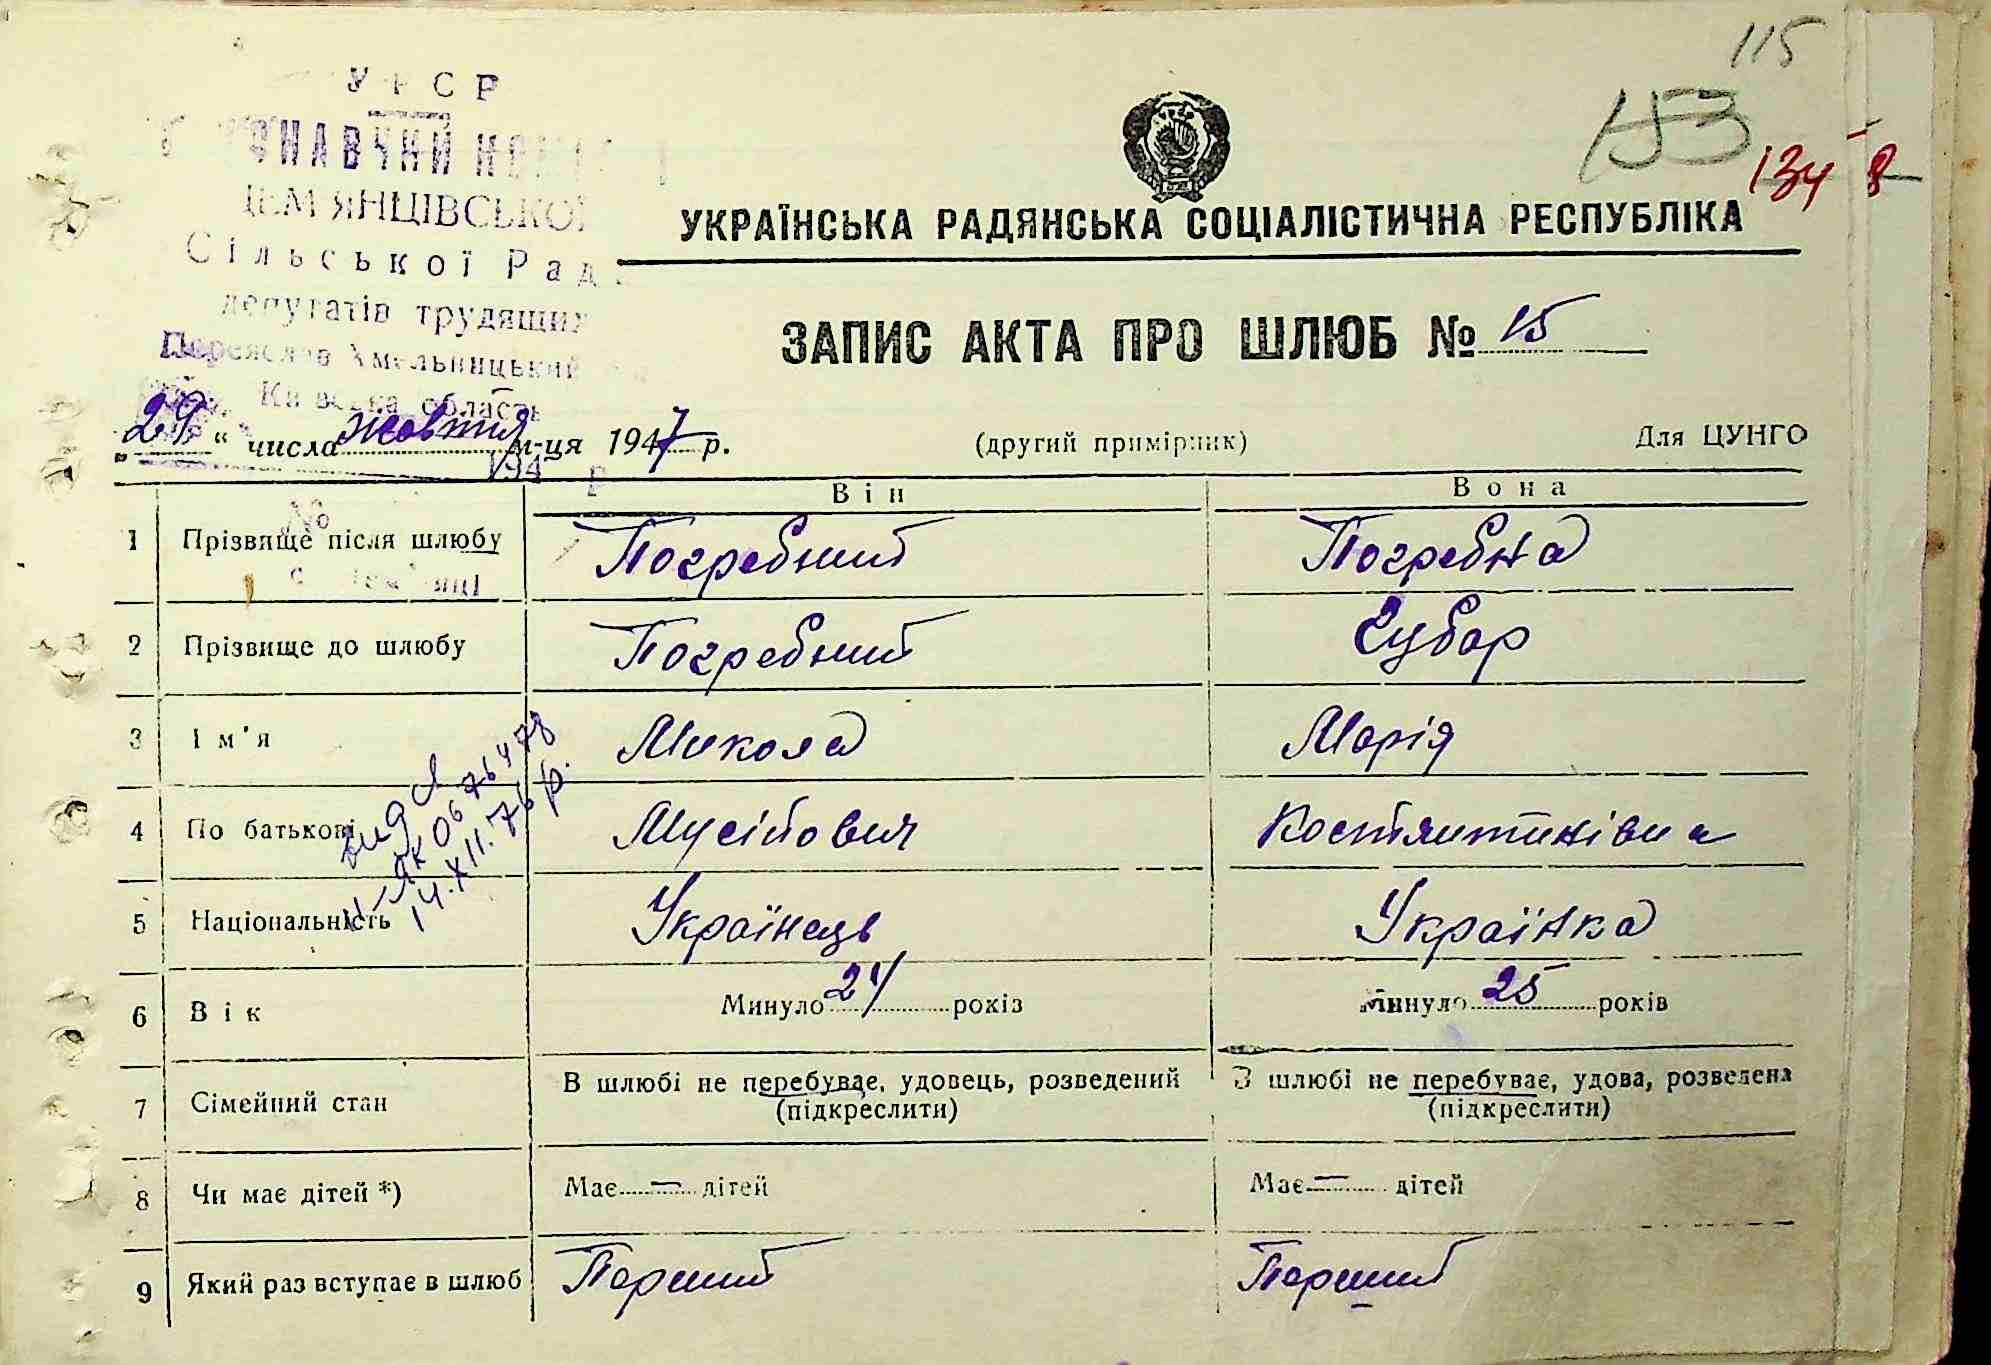 115
153
134
УРСР
ДЕМ'ЯНЦІВСЬКОЇ
Сільської Рад
депутатів трудящих
Переяслав Хмельницький
Київська область
УКРАЇНСЬКА РАДЯНСЬКА СОЦІАЛІСТИЧНА РЕСПУБЛІКА
ЗАПИС АКТА ПРО ШЛЮБ № 15
„29“ числа жовтня м-ця 1947 р. (другий примірник) Для ЦУНГО
194 р
№
Він Вона
1 Прізвище після шлюбу Погребний Погребна
2 Прізвище до шлюбу Погребний Губар
3 Ім'я Микола Марія
4 По батькові Мусійович Костянтинівна
видл
ІІ-ЯК 0676478
14.XII.76 р.
5 Національність Українець Українка
6 Вік Минуло 24 років Минуло 25 років
7 Сімейний стан В шлюбі не перебуває, удовець, розведений В шлюбі не перебуває, удова, розведена
(підкреслити) (підкреслити)
8 Чи має дітей *) Має — дітей Має — дітей
9 Який раз вступає в шлюб Перший Перший